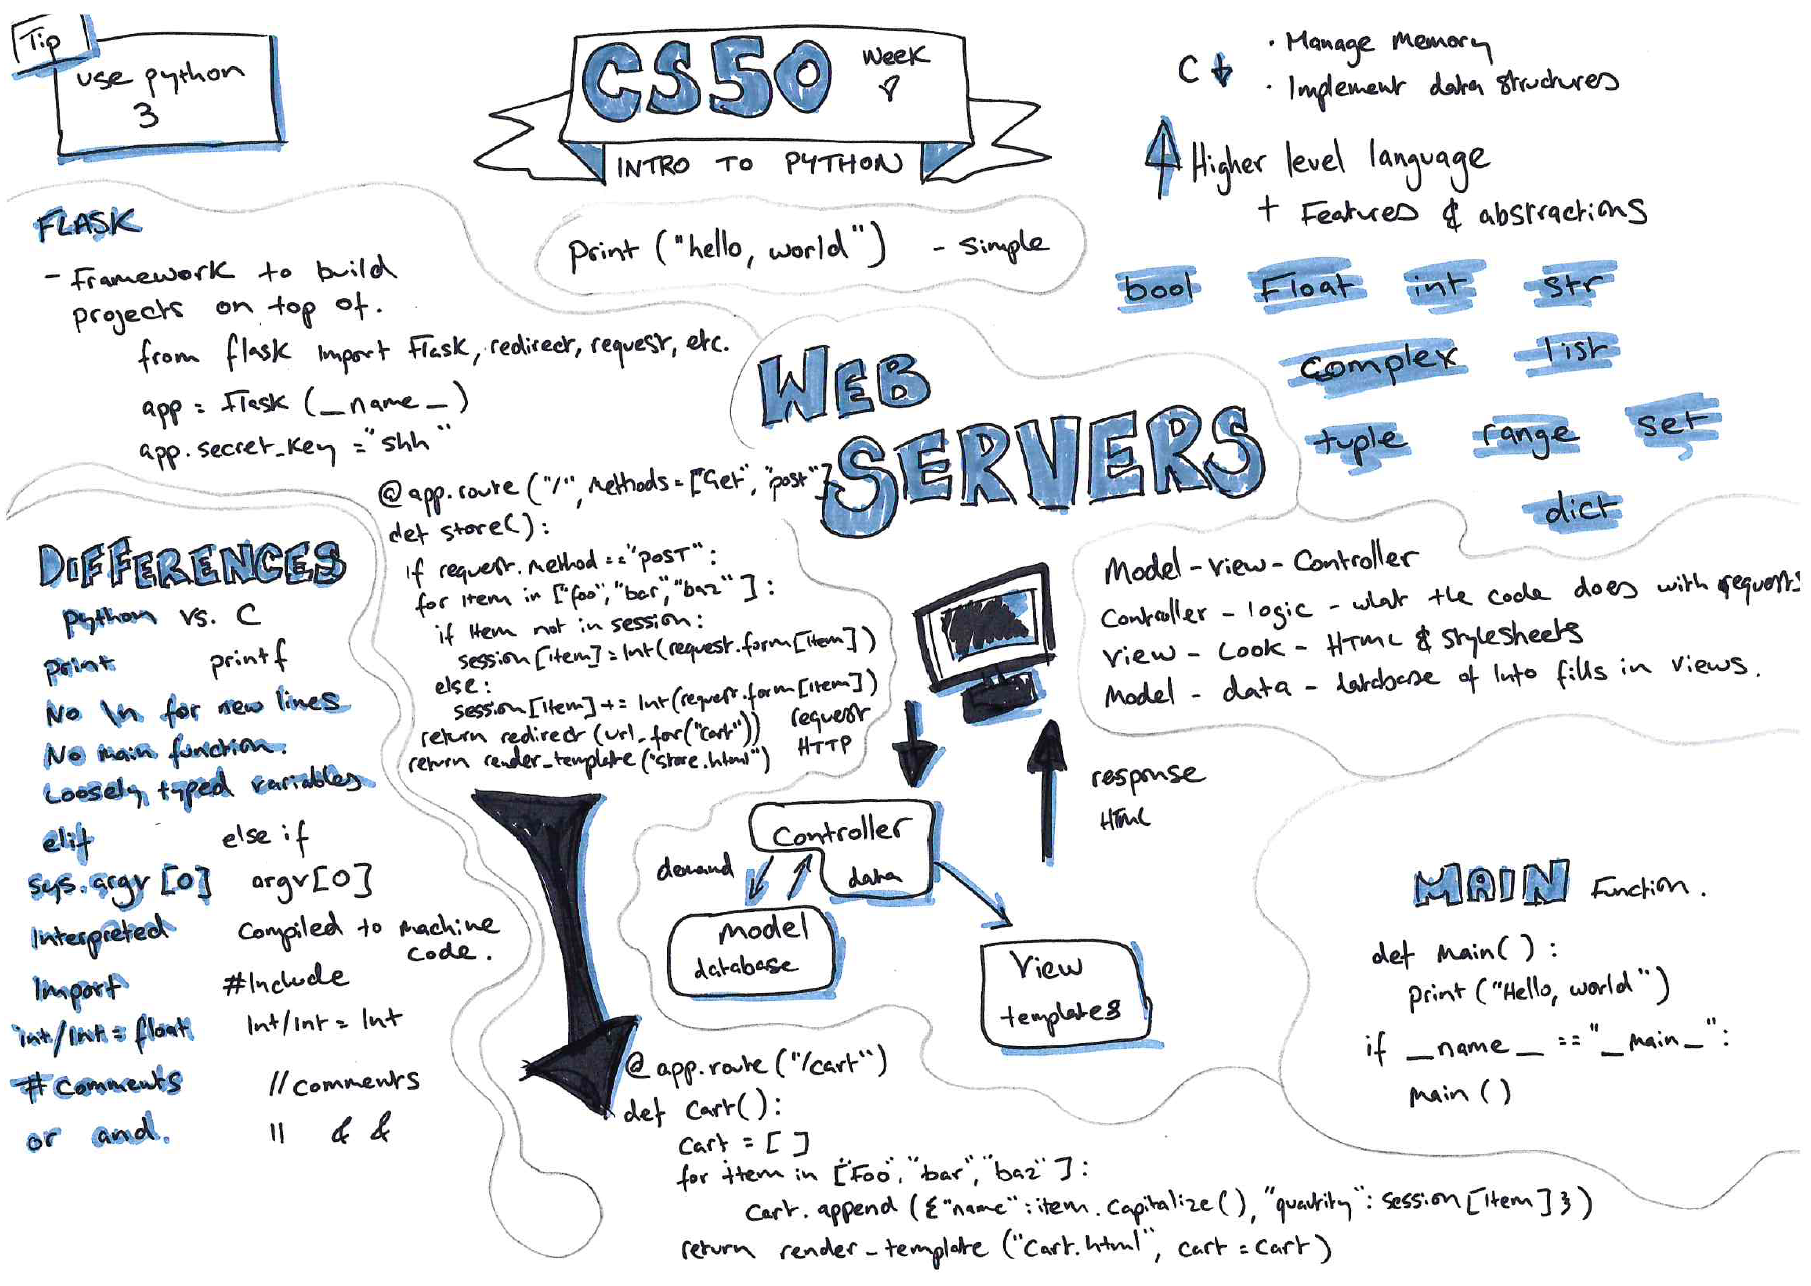 Tip
use python
3
CS50 Week
INTRO TO PYTHON
print ("hello, world") - simple
C
· Manage memory
· Implement data structures
Higher level language
+ Features & abstractions
bool Float int str
complex list
tuple range set
dict
FLASK
- Framework to build
projects on top of.
from flask import Flask, redirect, request, etc.
app = Flask (_name_)
app.secret_key = "shh"
@app.route ("/", methods = ["Get", "post"]
def store():
if request.method == "POST":
for item in ["foo", "bar", "baz"]:
if item not in session:
session [item] = int (request.form [item])
else:
session [item] += int (request.form [item])
return redirect (url_for ("cart"))
return render_template ("store.html")
WEB
SERVERS
DIFFERENCES
python vs. C
print printf
No \n for new lines
No main function.
Loosely typed variables
elif else if
sys.argv [0] argv [0]
Interpreted Compiled to machine
code.
import #include
int/int = float int/int = int
# comments // comments
or and. || & &
Model - View - Controller
Controller - logic - what the code does with requests
View - Look - HTML & stylesheets
Model - data - database of info fills in views.
request
HTTP
response
HTML
Controller
demand
data
model
database
View
templates
@app.route ("/cart")
def cart():
cart = [ ]
for item in ["Foo", "bar", "baz"]:
cart.append ({"name": item.capitalize(), "quantity": session [item] })
return render_template ("cart.html", cart = cart)
MAIN Function.
def main( ):
print ("Hello, world")
if _name_ == "_main_":
main ( )